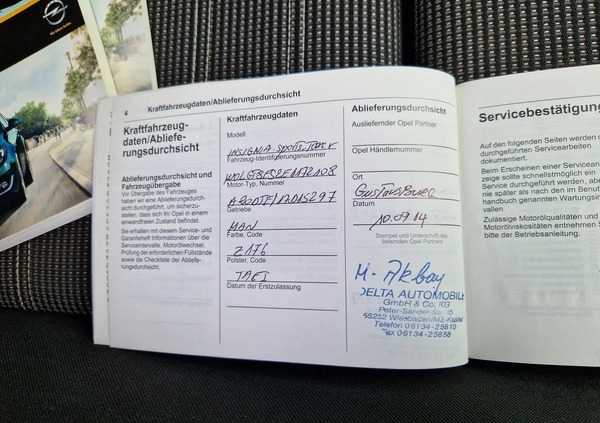 4
Kraftfahrzeugdaten/Ablieferungsdurchsicht
Kraftfahrzeug-
daten/Abliefe-
rungsdurchsicht
Ablieferungsdurchsicht und
Fahrzeugübergabe
Vor Übergabe des Fahrzeuges
haben wir eine Ablieferungsdurch-
sicht durchgeführt, um sicherzu-
stellen, dass sich Ihr Opel in einem
einwandfreien Zustand befindet.
Sie erhalten mit diesem Service- und
Garantieheft Informationen über die
Serviceintervalle, Motorölwechsel,
Prüfung der erforderlichen Füllstände
sowie die Checkliste der Ablieferungs-
durchsicht.
Kraftfahrzeugdaten
Modell
INSIGNIA Sports-Tourer
Fahrzeug-Identifizierungsnummer
Motor-Typ, Nummer
Getriebe
MAN
Farbe, Code
Polster, Code
Datum der Erstzulassung
Ablieferungsdurchsicht
Ausliefernder Opel Partner
Opel Händlernummer
Ort
Gustavsburg
Datum
10.09.14
Stempel und Unterschrift des
liefernden Opel Partners
M. Akbay
DELTA AUTOMOBILE
GmbH & Co. KG
Peter-Sander-Str. 15
55252 Wiesbaden/MZ-Kastel
Telefon 06134-25810
Fax 06134-25858
Servicebestätigung
Auf den folgenden Seiten werden d
durchgeführten Servicearbeiten
dokumentiert.
Beim Erscheinen einer Servicean
zeige sollte schnellstmöglich ein
Service durchgeführt werden, abe
nie später als nach den im Benut
handbuch genannten Wartungsin
vallen.
Zulässige Motorölqualitäten und
Motorölviskositäten entnehmen S
bitte der Betriebsanleitung.